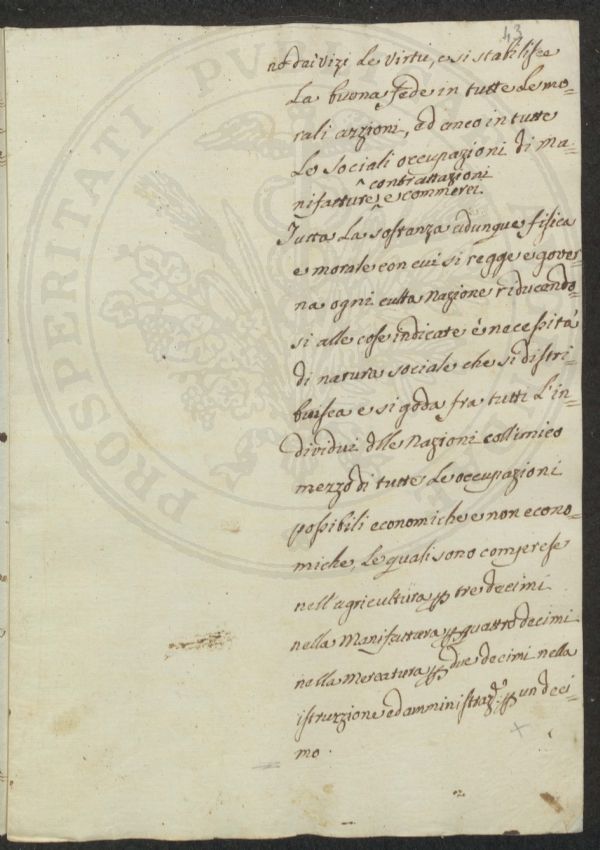 43
no dai vizi le virtu, e si stabilisce
la buona fede in tutte le mo=
rali azzioni, ed anco in tutte
le sociali occupazioni di ma=
contrattazioni
nifatture e commerci.
Tutta la sostanza adunque fisica
e morale con cui si regge e gover=
na ogni culta Nazione riducendo=
si alle cose indicate è necessità
di natura sociale che si distri=
buisca e si goda fra tutti l'in=
dividui dlle Nazioni coll'unico
mezzo di tutte le occupazioni
possibili economiche e non econo=
miche, le quali sono comprese
nell'agricultura p tre decimi
nella Manifattura p quattro decimi
nella Mercatura p due decimi nella
istruzzione ed amministraz.e p un deci=
mo.
PROSPERITATI PVBLICAE